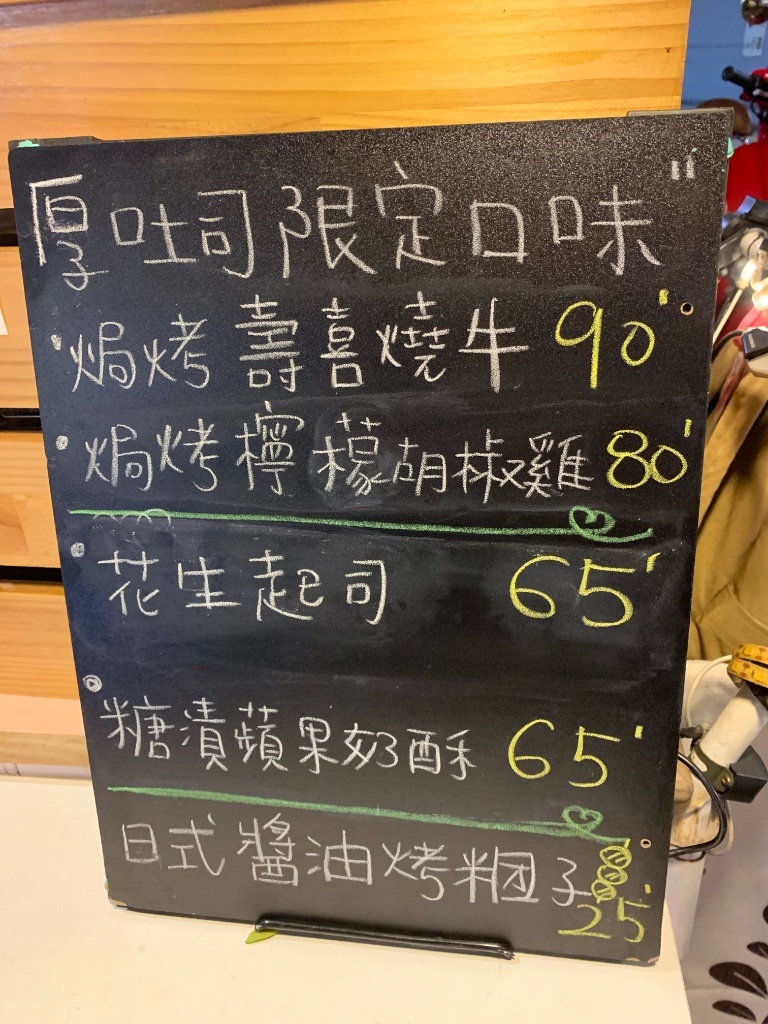 厚吐司限定口味"
焗烤壽喜燒牛 90'
焗烤檸檬胡椒雞 80'
花生起司 65'
糖漬蘋果奶酥 65'
日式醬油烤糰子 25'